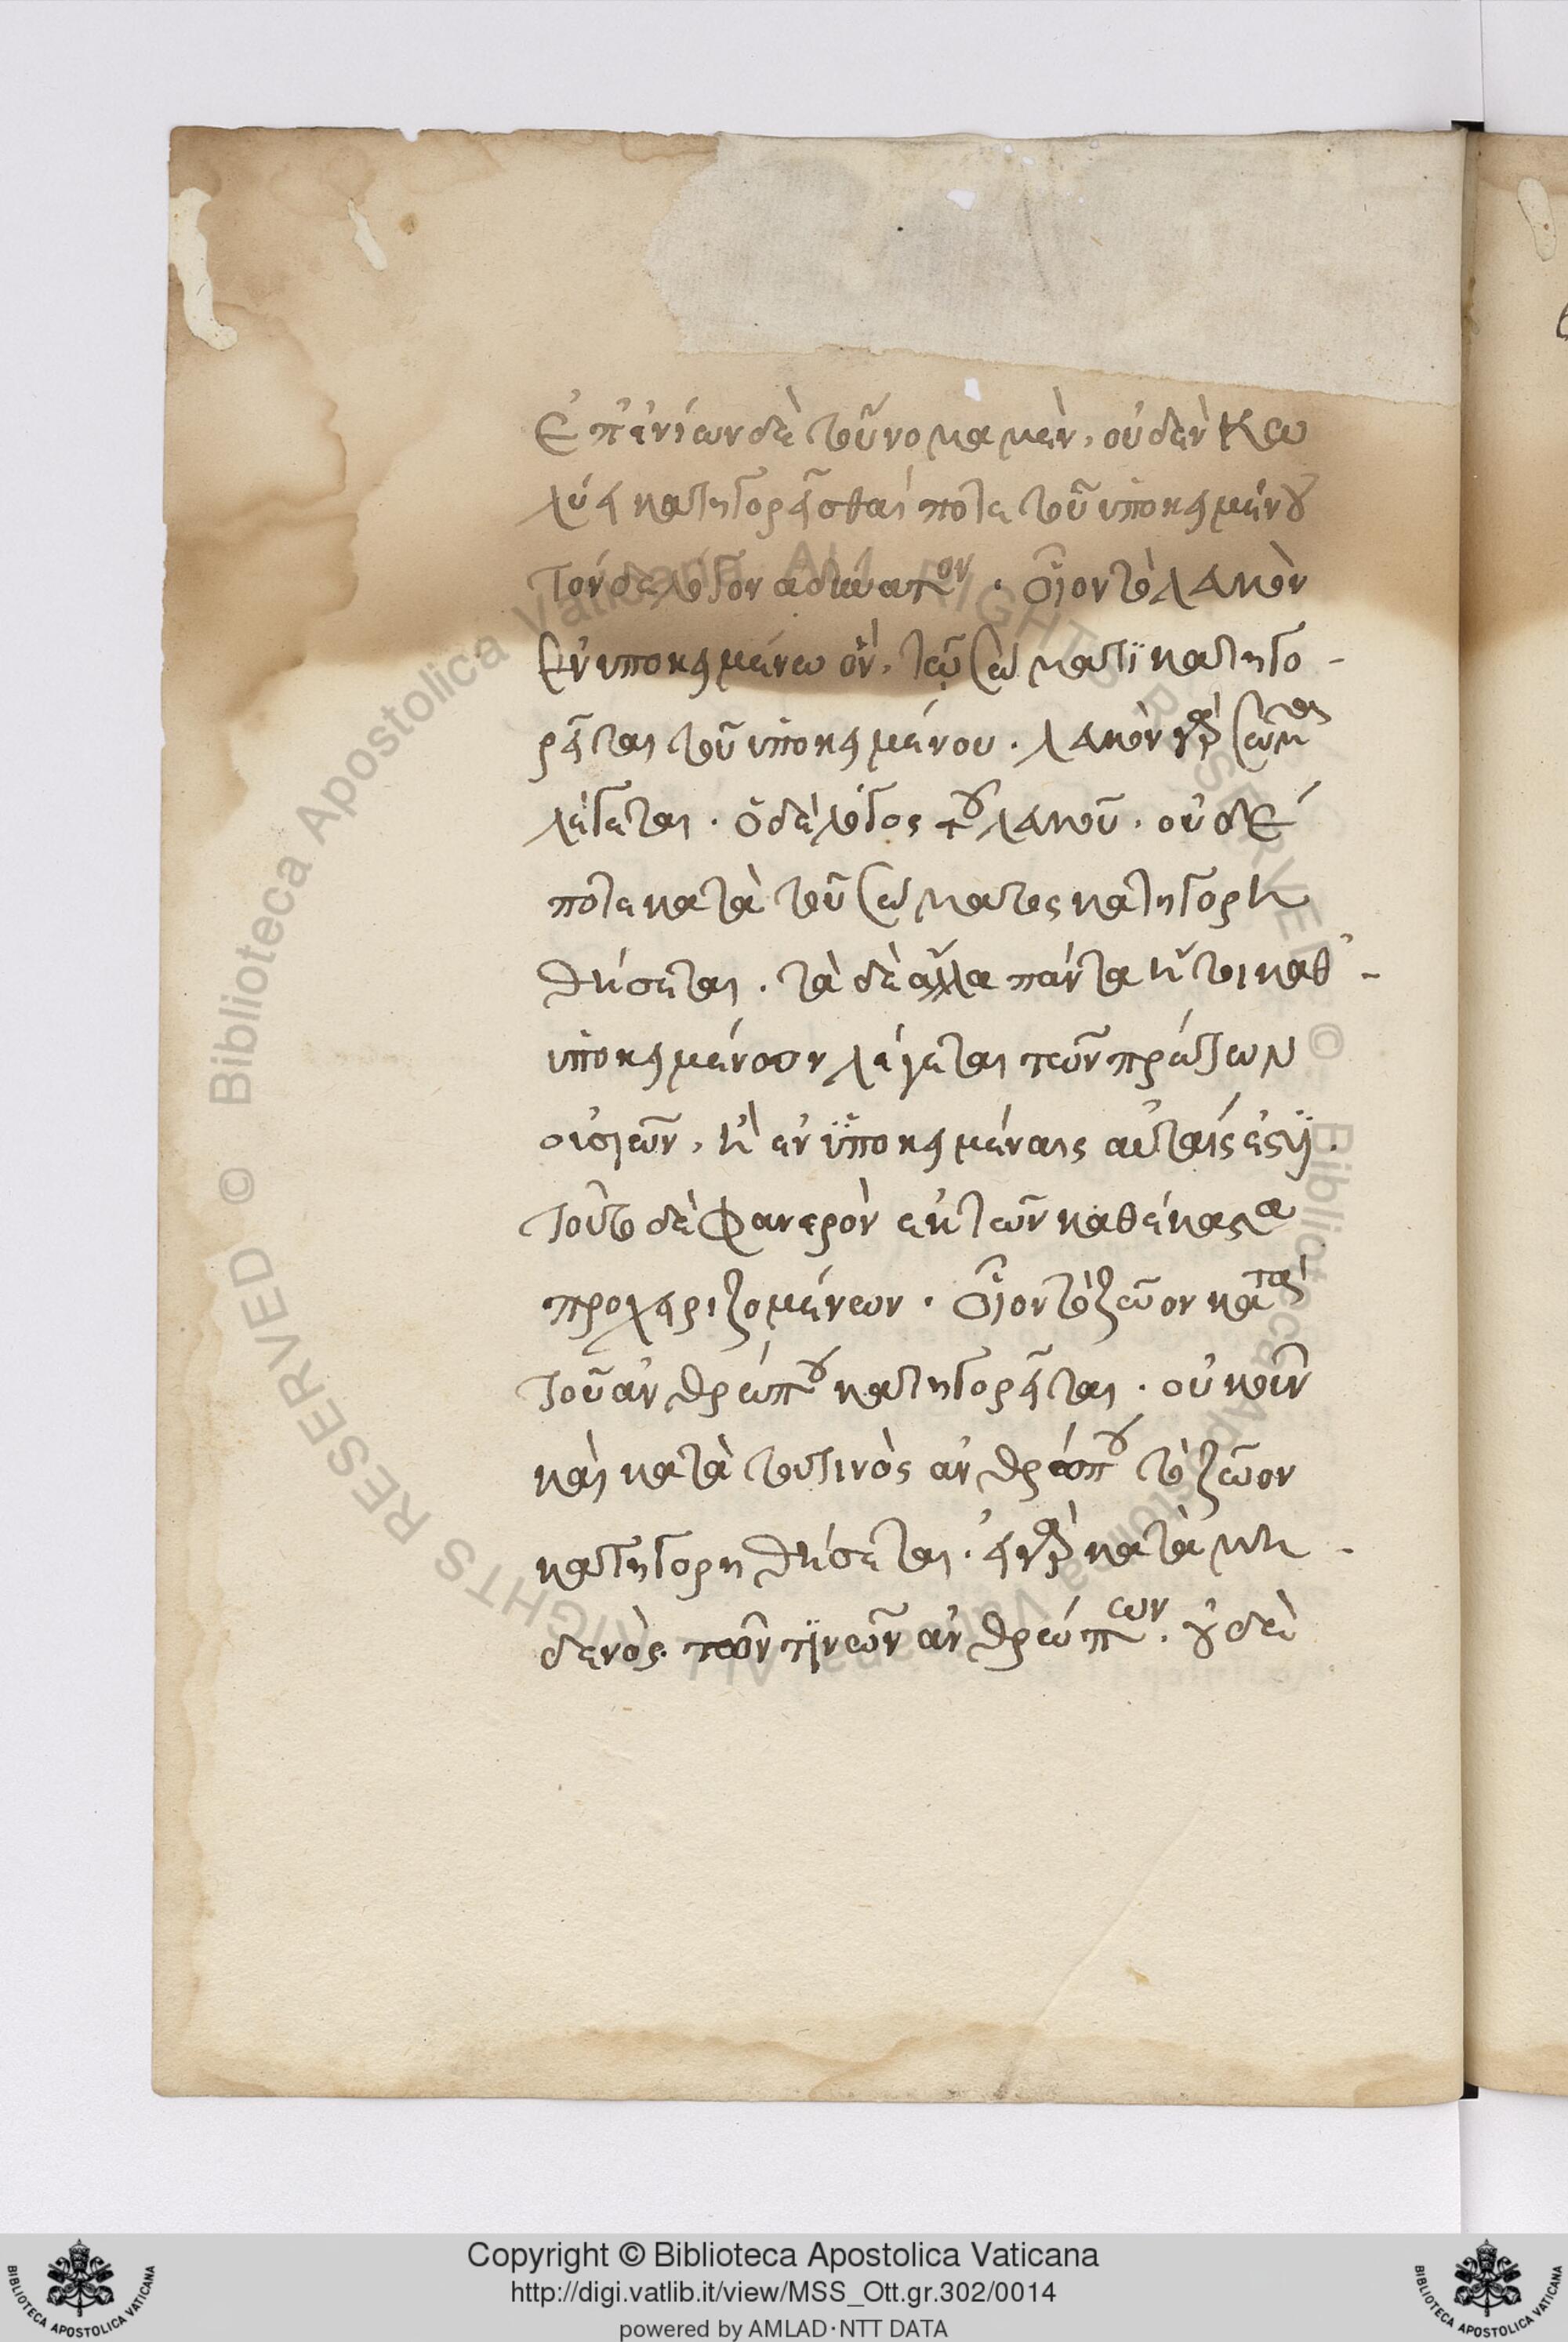 ἐπ' ἐνίων δὲ τοὔνομα μὲν, οὐδὲν κω
λύει κατηγορεῖσθαί ποτε τοῦ ὑποκειμένου
τὸν δὲ λόγον ἀδύνατον. οἷον τὸ λευκὸν
ἐν ὑποκειμένω ὂν, τῶ σώματι κατηγο-
ρεῖται τοῦ ὑποκειμένου. λευκὸν γὰρ σῶμα
λέγεται. ὁ δὲ λόγος τοῦ λευκοῦ. οὐδέ
ποτε κατὰ τοῦ σώματος κατηγορη
θήσεται. τὰ δὲ ἄλλα πάντα ἤτοι καθ' -
ὑποκειμένων λέγεται τῶν πρώτων
οὐσιῶν, ἢ ἐν ὑποκειμέναις αὐταῖς ἐστὶ.
τοῦτο δὲ φανερὸν ἐκ τῶν καθέκαστα
προχειριζομένων. οἷον τὸ ζῶον κατὰ
τοῦ ἀνθρώπου κατηγορεῖται. οὐκοῦν
καὶ κατὰ τοῦ τινὸς ἀνθρώπου τὸ ζῶον
κατηγορηθήσεται. εἰ γὰρ κατὰ μη -
δενὸς τῶν τινῶν ἀνθρώπων. οὐδὲ
Copyright © Biblioteca Apostolica Vaticana
http://digi.vatlib.it/view/MSS_Ott.gr.302/0014
powered by AMLAD·NTT DATA
BIBLIOTECA APOSTOLICA VATICANA
BIBLIOTECA APOSTOLICA VATICANA